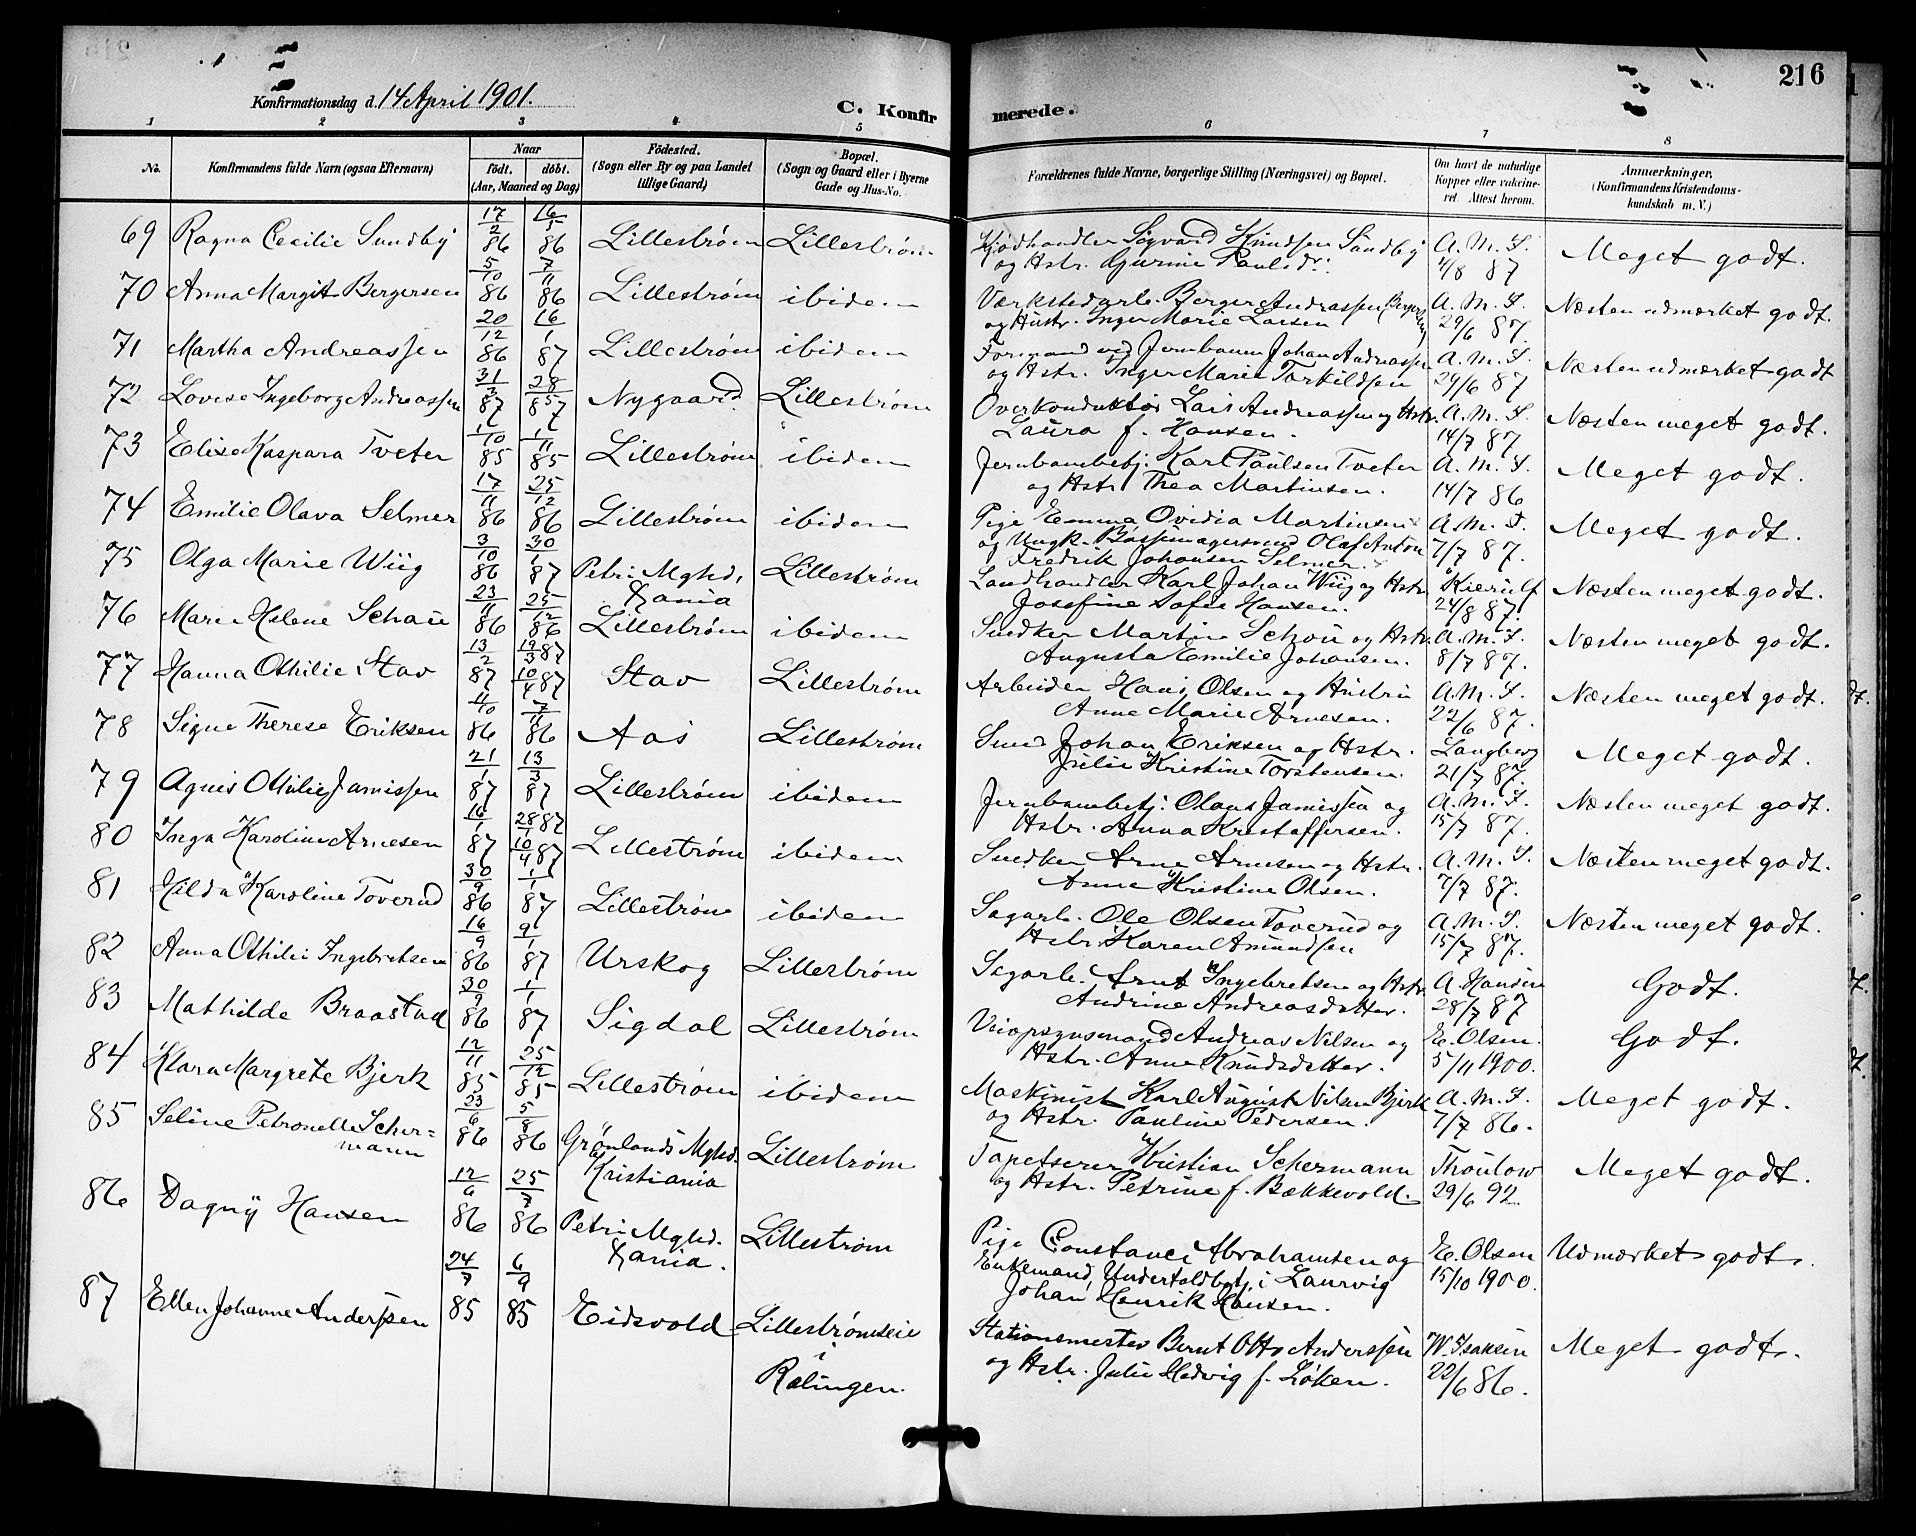 216
Konfirmationsdag d. 14 April 1901.
C. Konfirmerede.
1 2 3 4 5 6 7 8
No.
Konfirmandens fulde Navn (ogsaa Efternavn)
Naar
født. døbt.
(Aar, Maaned og Dag)
Fødested.
(Sogn eller By og paa Landet
tillige Gaard)
Bopæl.
(Sogn og Gaard eller i Byerne
Gade og Hus-No.
Forældrenes fulde Navne, borgerlige Stilling (Næringsvei) og Bopæl.
Om havt de naturlige
Kopper eller vakcine-
ret. Attest herom.
Anmærkninger.
(Konfirmandens Kristendoms-
kundskab m. V.)
69 Ragna Cecilie Sundby 17/2 86 16/5 86 Lillestrøm Lillestrøm Kjødhandler Sigvard Knudsen Sundby A. M. S. Meget godt.
og Hstr. Gurine Paulsdr. 4/8 87
70 Anna Margit Bergersen 5/10 86 7/11 86 Lillestrøm ibidem Værkstedarb. Berger Andreassen (Bergersen) A. M. S. Næsten udmærket godt.
og Hustr. Inger Marie Larsen 29/6 87.
71 Martha Andreassen 20/12 86 16/1 87 Lillestrøm ibidem Formand ved Jernbanen Johan Andreassen A. M. S. Næsten udmærket godt
og Hstr. Inger Marie Torkildsen 29/6 87
72 Lovise Ingeborg Andreassen 31/3 87 28/5 87 Nygaard Lillestrøm Overkonduktør Lars Andreassen og Hstr. A. M. S. Næsten meget godt.
Laura f. Hansen. 14/7 87
73 Elise Kaspara Tveter 1/10 85 1/11 85 Lillestrøm ibidem Jernbanebetj. Karl Paulsen Tveter A. M. S. Meget godt.
og Hstr. Thea Martinsen. 14/7 86
74 Emilie Olava Selmer 17/11 86 25/12 86 Lillestrøm ibidem Pige Emma Ovidia Martinsen A. M. S. Meget godt.
og Ungk. Bøssemagersvend Olaf Anton 7/7 87.
Fredrik Johansen Selmer.
75 Olga Marie Wiig 3/10 86 30/1 87 Petri Mghd. Lillestrøm Landhandler Karl Johan Wiig og Hstr. Kierulf Næsten meget godt.
Xania Josefine Sofie Hansen. 24/8 87.
76 Marie Helene Schau 23/11 86 25/12 86 Lillestrøm ibidem Snedker Martin Schou og Hstr. A. M. S. Næsten meget godt.
Augusta Emilie Johansen. 8/7 87.
77 Hanna Othilie Stav 13/2 87 19/3 87 10/4 87 Stav Lillestrøm Arbeider Hans Olsen og Hustru A. M. S. Næsten meget godt.
Anne Marie Arnesen. 22/6 87.
78 Signe Therese Eriksen 4/10 86 7/11 86 Aas Lillestrøm Smed Johan Eriksen og Hstr. Langberg Meget godt.
Julie Kristine Torstensen. 21/7 87.
79 Agnes Othilie Jamissen 21/1 87 13/3 87 Lillestrøm ibidem Jernbanebetj. Olaus Jamissen og A. M. S. Næsten meget godt.
Hstr. Anna Kristoffersen. 15/7 87.
80 Inga Karoline Arnesen 16/1 87 28/1 87 10/4 87 Lillestrøm ibidem Snedker Arne Arnesen og Hstr. A. M. S. Næsten meget godt.
Anne Kristine Olsen. 7/7 87.
81 Hilda Karoline Toverud 30/9 86 1/1 87 Lillestrøm ibidem Sagarb. Ole Olsen Toverud og A. M. S. Næsten meget godt.
Hstr. Karen Amundsen 15/7 87.
82 Anna Othilie Ingebretsen 16/9 86 9/1 87 Urskog Lillestrøm Sagarb. Arnt Ingebretsen og Hstr. A. Hansen Godt.
Andrine Andreasdatter. 28/7 87
83 Mathilde Braastad 30/9 86 1/1 87 Sigdal Lillestrøm Veiopsynsmand Andreas Nilsen og E. Olsen. Godt.
Hstr. Anne Knudsdatter. 5/11 1900.
84 Klara Margrete Bjerk 12/11 85 25/12 85 Lillestrøm ibidem Maskinist Karl August Nilsen Bjerk A. M. S. Meget godt.
og Hstr. Pauline Pedersen. 7/7 86.
85 Seline Petronelle Scher= 23/6 86 5/8 86 Grønlands Mghd. Lillestrøm Tapetserer Kristian Schermann Thoulow Meget godt.
mann Kristiania og Hstr. Petrine f. Bækkevold. 29/6 92.
86 Dagny Hansen 12/6 86 25/7 86 Petri Mghd. Lillestrøm Pige Constance Abrahamsen og E. Olsen Udmærket godt.
Xania. Enkemand, Undertoldbetj. i Laurvig 15/10 1900.
Johan Henrik Hansen.
87 Ellen Johanne Anderssen 24/7 85 6/9 85 Eidsvold Lillestrømseie Stationsmester Bernt Otto Anderssen W. Isaksen Meget godt.
i og Hstr. Julie Hedvig f. Løken. 22/6 86.
Rælingen.